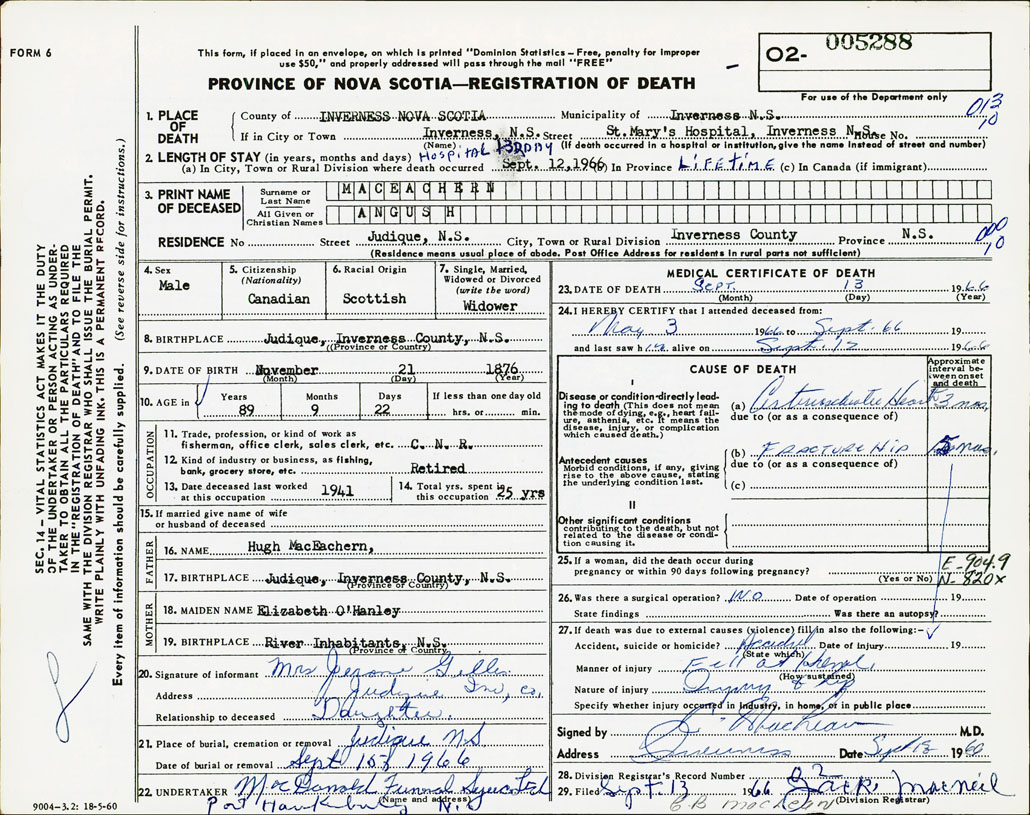 FORM 6
This form, if placed in an envelope, on which is printed "Dominion Statistics – Free, penalty for improper
use $50," and properly addressed will pass through the mail "FREE"
O2- 005288
For use of the Department only
PROVINCE OF NOVA SCOTIA—REGISTRATION OF DEATH
013
10
1. PLACE OF DEATH
County of INVERNESS NOVA SCOTIA Municipality of Inverness N.S.
If in City or Town Inverness, N.S. Street St.Mary's Hospital, Inverness N.S. House No.
(Name) (If death occurred in a hospital or institution, give the name instead of street and number)
2. LENGTH OF STAY (in years, months and days) Hospital
(a) In City, Town or Rural Division where death occurred Sept. 12, 1966 (b) In Province LIFETIME (c) In Canada (if immigrant)
3. PRINT NAME OF DECEASED
Surname or Last Name MACEACHERN
All Given or Christian Names ANGUS H
000
10
RESIDENCE No Street Judique, N.S. City, Town or Rural Division Inverness County Province N.S.
(Residence means usual place of abode. Post Office Address for residents in rural parts not sufficient)
4. Sex
Male
5. Citizenship (Nationality)
Canadian
6. Racial Origin
Scottish
7. Single, Married, Widowed or Divorced (write the word)
Widower
8. BIRTHPLACE Judique, Inverness County, N.S.
((Province or Country)
9. DATE OF BIRTH November 21 1876
(Month) (Day) (Year)
10. AGE in Years Months Days If less than one day old
89 9 22 hrs. or min.
OCCUPATION
11. Trade, profession, or kind of work as
fisherman, office clerk, sales clerk, etc. C. N. R.
12. Kind of industry or business, as fishing,
bank, grocery store, etc. Retired
13. Date deceased last worked
at this occupation 1941
14. Total yrs. spent in
this occupation 25 yrs
15. If married give name of wife
or husband of deceased
FATHER
16. NAME Hugh MacEachern,
17. BIRTHPLACE Judique, Inverness County, N.S.
(Province or Country)
MOTHER
18. MAIDEN NAME Elizabeth O'Hanley
19. BIRTHPLACE River Inhabitants, N.S.
(Province or Country)
20. Signature of informant Mrs Gillis
Address Judique Inv, Co,
Relationship to deceased Daughter.
21. Place of burial, cremation or removal Judique N S
Date of burial or removal Sept 15th 1966
22. UNDERTAKER MacDonald Funeral Ltd
(Name and address)
Port Hawkesbury N.S
9004-3.2: 18-5-60
MEDICAL CERTIFICATE OF DEATH
23. DATE OF DEATH Sept. 13 1966
(Month) (Day) (Year)
24. I HEREBY CERTIFY that I attended deceased from:
May 3 1966 to Sept. 66 19
and last saw him alive on Sept. 12 1966
CAUSE OF DEATH
Approximate interval between onset and death
I
Disease or condition directly leading to death (This does not mean the mode of dying, e.g., heart failure, asthenia, etc. It means the disease, injury, or complication which caused death.)
(a) Arteriosclerotic Heart mos.
due to (or as a consequence of)
Antecedent causes
Morbid conditions, if any, giving rise to the above cause, stating the underlying condition last.
(b) FRACTURE HIP mos.
due to (or as a consequence of)
(c)
II
Other significant conditions
contributing to the death, but not related to the disease or condition causing it.
25. If a woman, did the death occur during
pregnancy or within 90 days following pregnancy?
(Yes or No)
E-904.9
N-820X
26. Was there a surgical operation? NO Date of operation 19
State findings Was there an autopsy?
27. If death was due to external causes (violence) fill in also the following:-
Accident, suicide or homicide? Accident Date of injury 19
(State which)
Manner of injury Fell at home,
(How sustained)
Nature of injury Injury of hip
Specify whether injury occurred in industry, in home, or in public place
Signed by MacLean M.D.
Address Inverness Date Sept 13 1966
28. Division Registrar's Record Number 92
29. Filed Sept. 13 1966 Jack MacNeil
(Division Registrar)
C.B. MacLean
SEC. 14 – VITAL STATISTICS ACT MAKES IT THE DUTY
OF THE UNDERTAKER OR PERSON ACTING AS UNDER-
TAKER TO OBTAIN ALL THE PARTICULARS REQUIRED
IN THE "REGISTRATION OF DEATH" AND TO FILE THE
SAME WITH THE DIVISION REGISTRAR WHO SHALL ISSUE THE BURIAL PERMIT.
WRITE PLAINLY WITH UNFADING INK. THIS IS A PERMANENT RECORD.
Every item of information should be carefully supplied. (See reverse side for instructions.)